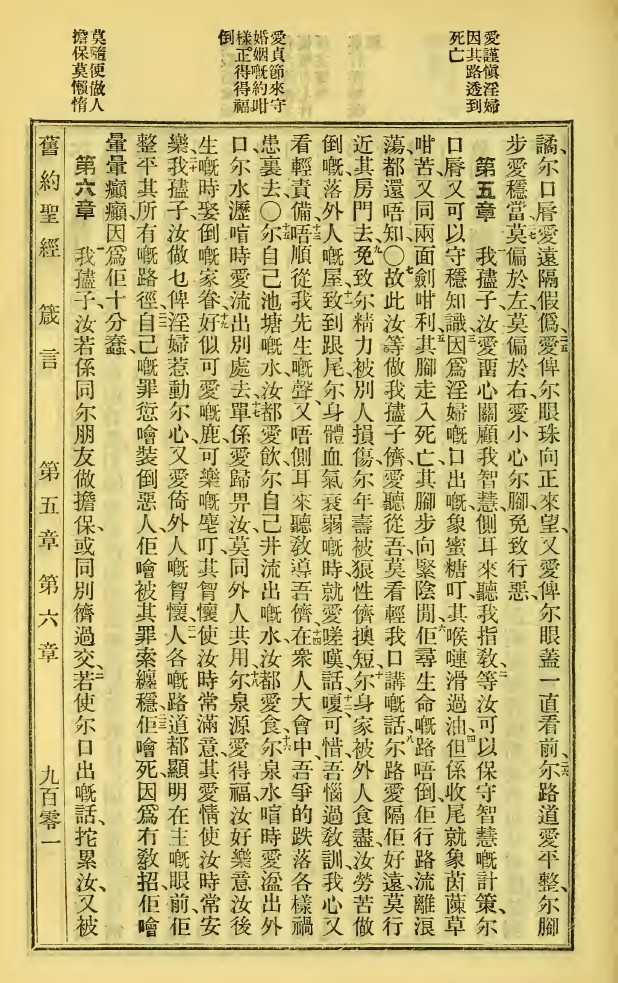 愛謹愼淫婦
因其路透到
死亡
愛貞節來守
婚姻嘅約咁
樣正得得福
倒
莫隨便做人
擔保莫懶惰
譎、尔口唇愛遠隔假僞、二五愛俾尔眼珠向正來望、又愛俾尔眼蓋一直看前、二六尔路道愛平整、尔腳
步愛穩當、二七莫偏於左、莫偏於右、愛小心尔腳、免致行惡、
第五章 一我孻子、汝愛畱心關顧我智慧、側耳來聽我指敎、二等汝可以保守智慧嘅計策、尔
口唇又可以守穩知識、三因爲淫婦嘅口出嘅、象蜜糖叮、其喉嗹滑過油、四但係收尾就象茵蔯草
咁苦、又同兩面劍咁利、五其腳走入死亡、其腳步向緊陰間、六佢尋生命嘅路唔倒、佢行路流離浪
蕩、都還唔知、〇七故此汝等做我孻子儕、愛聽從吾、莫看輕我口講嘅話、八尔路愛隔佢好遠、莫行
近其房門去、九免致尔精力被別人損傷、尔年壽被狠性儕擙短、十尔身家被外人食盡、汝勞苦做
倒嘅、落外人嘅屋、十一致到跟尾尔身體血氣衰弱嘅時、就愛嗟嘆、十二話、嗄、可惜吾惱過敎訓、我心又
看輕責備、十三唔順從我先生嘅聲、又唔側耳來聽敎導吾儕、十四在衆人大會中、吾爭的跌落各樣禍
患裏去、〇十五尔自己池塘嘅水、汝都愛飮、尔自己井流出嘅水、汝都愛食、十六尔泉水喑時愛溢出外
口、尔水瀝喑時愛流出別處去、十七單係愛歸畀汝、莫同外人共用、十八尔泉源愛得福、汝好樂意汝後
生嘅時娶倒嘅家眷、十九好似可愛嘅鹿、可樂嘅麀叮、其智懷使汝時常滿意、其愛情使汝時常安
樂、二十我孻子、汝做乜俾淫婦惹動尔心、又愛倚外人嘅智懷、二一人各嘅路道、都顯明在主嘅眼前、佢
整平其所有嘅路徑、二二自己嘅罪愆噲裝倒惡人、佢噲被其罪索纏穩、二三佢噲死、因爲有敎招、佢噲
暈暈癲癲、因爲佢十分蠢、
第六章 一我孻子、汝若係同尔朋友做擔保、或同別儕過交、二若使尔口出嘅話、挓累汝、又被
舊約聖經 箴言 第五章 第六章 九百零一